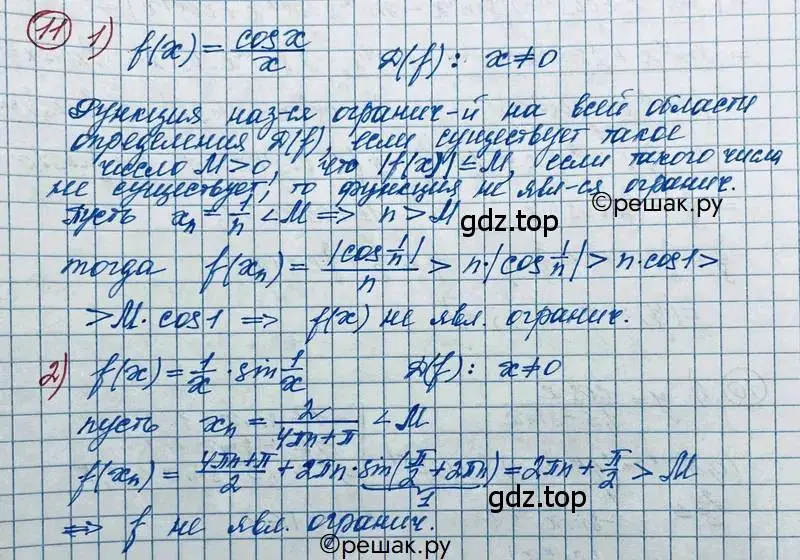 11 1) f(x) = cos x / x   D(f): x ≠ 0
Функция наз-ся огранич-й на всей области
определения D(f), если существует такое
число M > 0, что |f(x)| ≤ M, если такого числа
не существует, то функция не явл-ся огранич.
©решак.ру
Пусть xₙ = 1/n < M ⇒ n > M
gdz.top
тогда f(xₙ) = |cos 1/n| / n > n·|cos 1/n| > n·cos1 >
> M·cos1 ⇒ f(x) не явл. огранич.
2) f(x) = 1/x · sin 1/x   D(f): x ≠ 0
пусть xₙ = 2/(4πn+π) < M
f(xₙ) = (4πn+π)/2 + 2πn · sin(π/2 + 2πn) = 2πn + π/2 > M
1
gdz.top
⇒ f не явл. огранич.
©решак.ру
©решак.ру